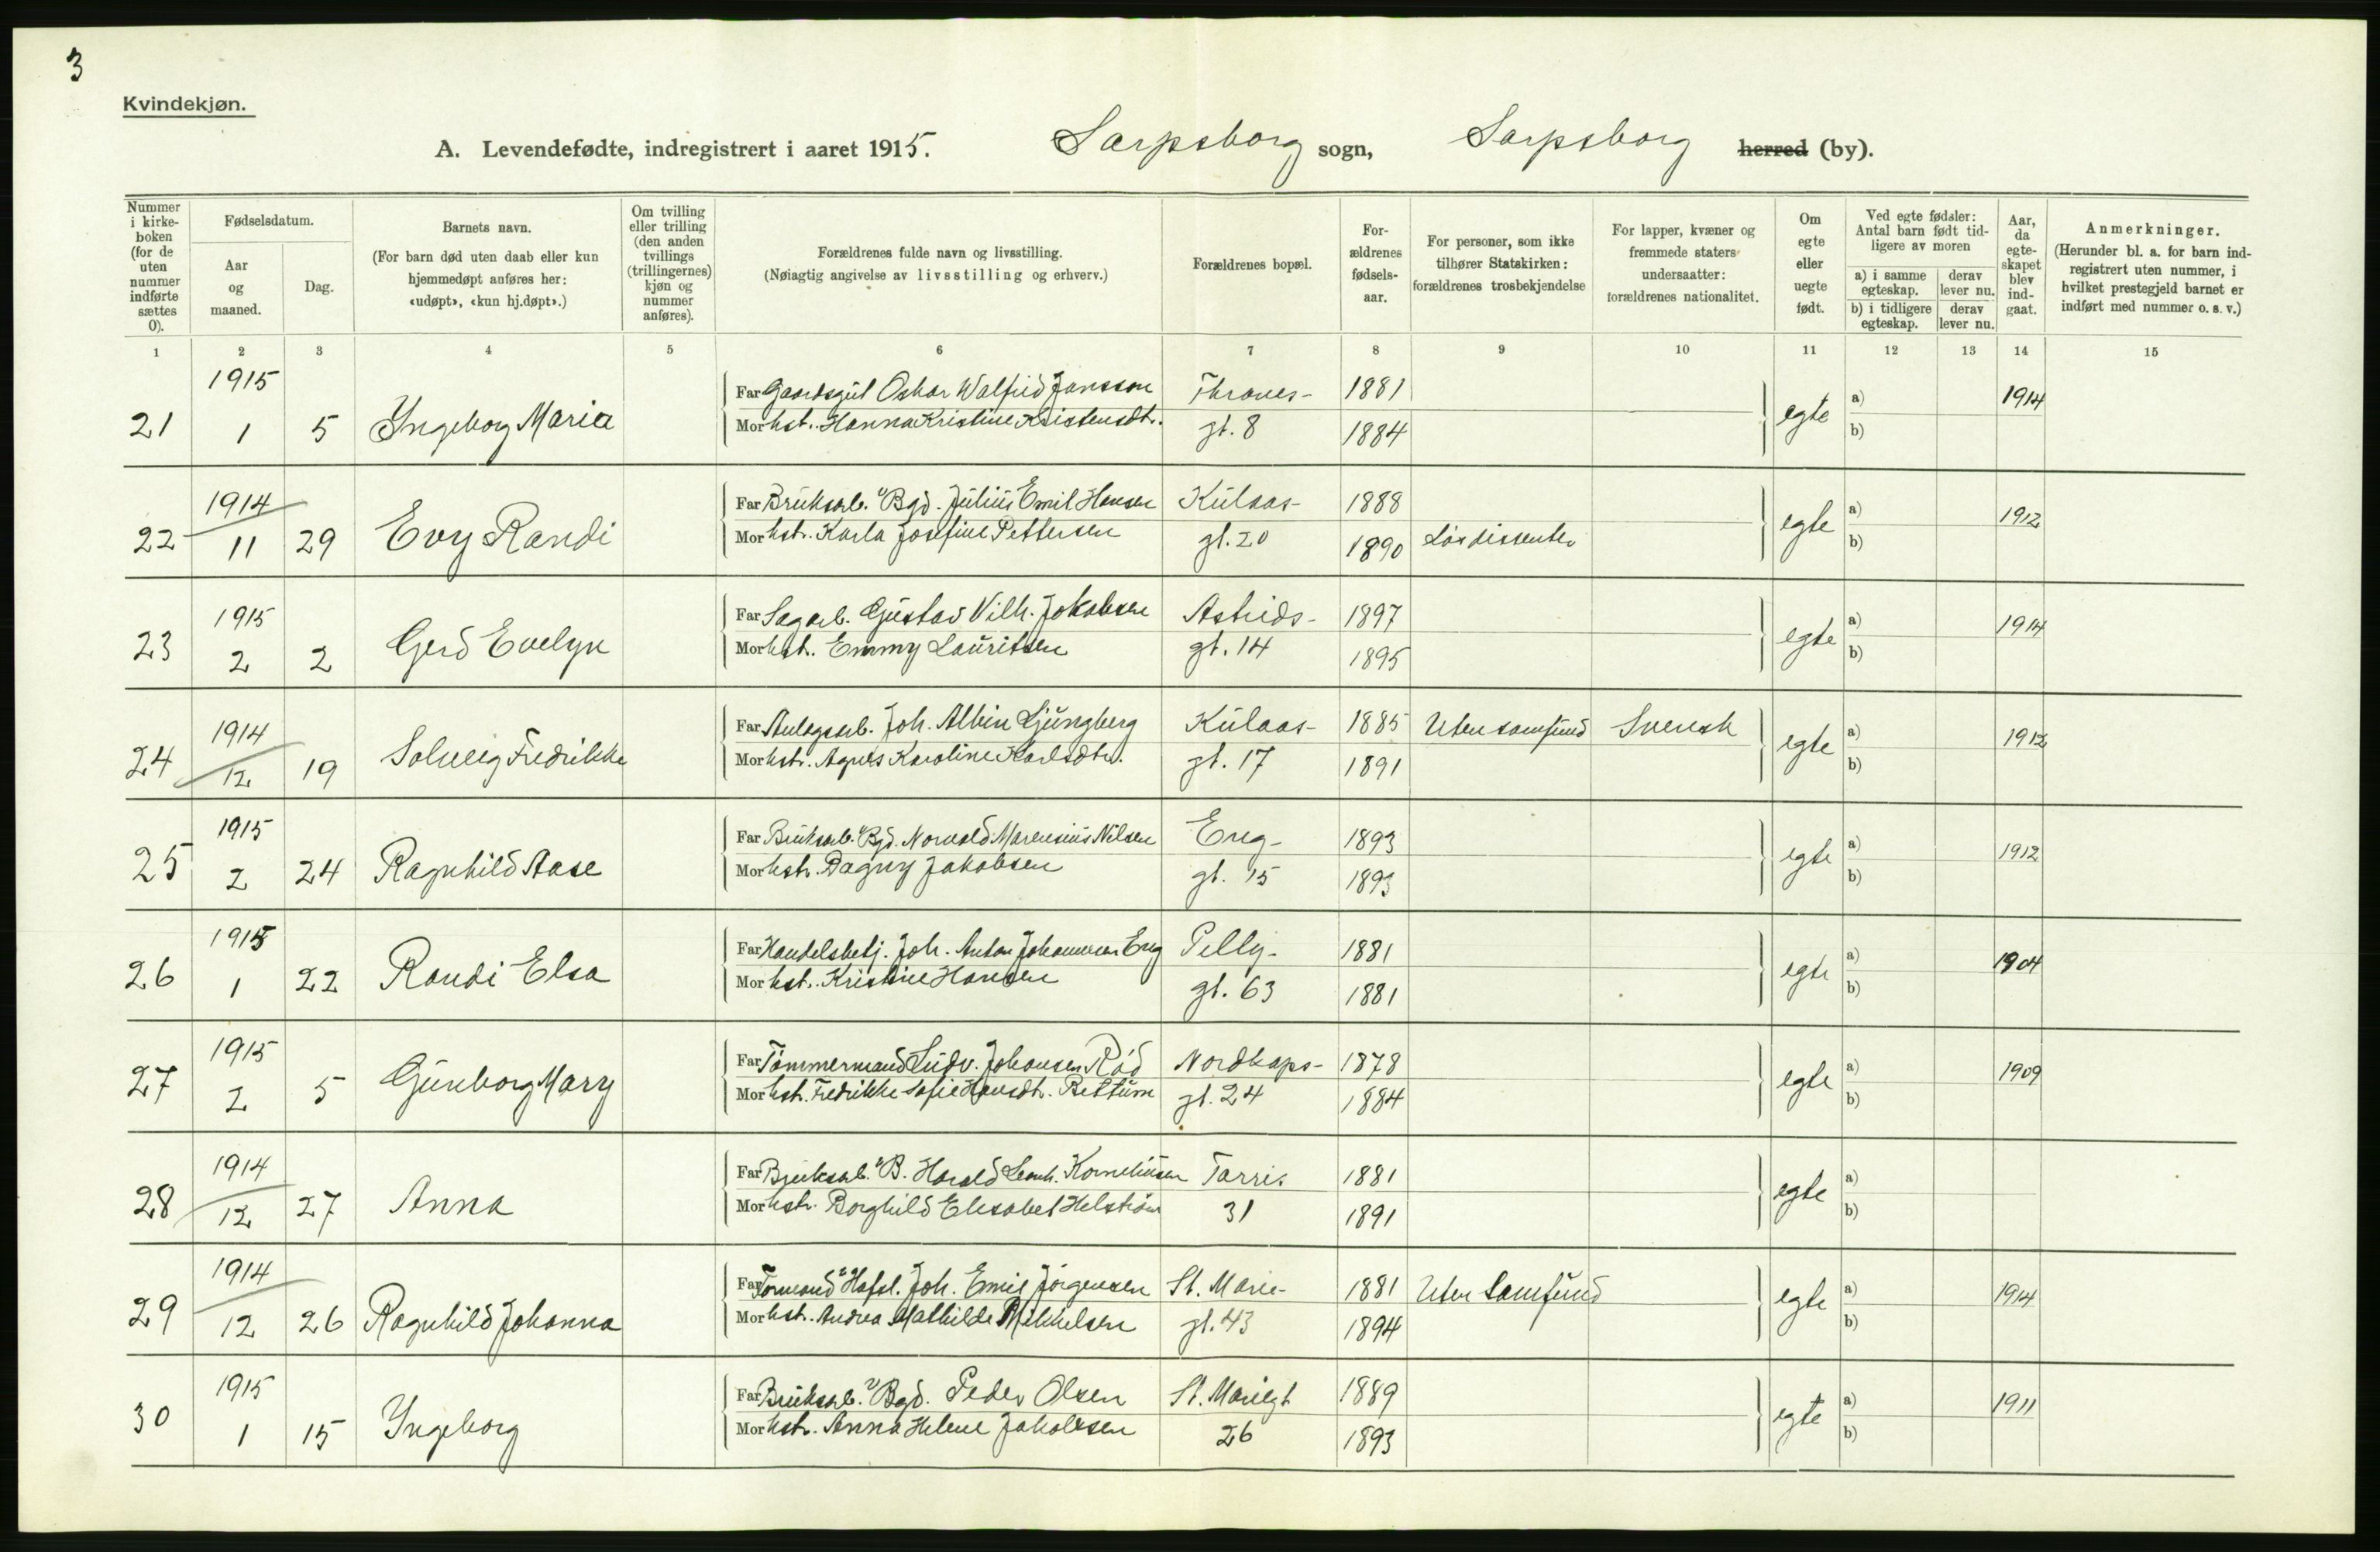 3
Kvindekjøn.
A. Levendefødte, indregistrert i aaret 1915. Sarpsborg sogn, Sarpsborg herred (by).
Nummer i kirkeboken (for de uten nummer indførte sættes 0).
Fødselsdatum.
Aar og maaned.
Dag.
Barnets navn.
(For barn død uten daab eller kun hjemmedøpt anføres her: «udøpt», «kun hj.døpt».)
Om tvilling eller trilling (den anden tvillings (trillingernes) kjøn og nummer anføres).
Forældrenes fulde navn og livsstilling.
(Nøiagtig angivelse av livsstilling og erhverv.)
Forældrenes bopæl.
For-ældrenes fødsels-aar.
For personer, som ikke tilhører Statskirken: forældrenes trosbekjendelse
For lapper, kvæner og fremmede staters undersaatter: forældrenes nationalitet.
Om egte eller uegte født.
Ved egte fødsler: Antal barn født tid-ligere av moren
a) i samme egteskap.
derav lever nu.
b) i tidligere egteskap.
derav lever nu.
Aar, da egte-skapet blev ind-gaat.
Anmerkninger.
(Herunder bl. a. for barn ind-registrert uten nummer, i hvilket prestegjeld barnet er indført med nummer o. s. v.)
1 2 3 4 5 6 7 8 9 10 11 12 13 14 15
1915 Far Gaardsgut Oskar Walfrid Jansson Thranes- 1881 a) 1914
21 1 5 Ingeborg Maria Mor hst. Hanna Kristine Kristensdtr. gt. 8 1884 egte b)
1914 Far Bruksarb. v/ Bgd. Julius Emil Hansen Kulaas- 1888 a) 1912
22 11 29 Evy Randi Mor hstr. Karla Josefine Pettersen gt. 20 1890 Løs dissenter egte b)
1915 Far Sagarb. Gustav Vilh. Jakobsen Astrids- 1897 a) 1914
23 2 2 Gerd Evelyn Mor hst. Emmy Lauritsen gt. 14 1895 egte b)
1914 Far Anlegsarb. Joh. Albin Ljungberg Kulaas- 1885 Uten samfund Svensk a) 1912
24 12 19 Solveig Fredrikke Mor hstr. Agnes Karoline Karlsdtr. gt. 17 1891 egte b)
1915 Far Bruksarb. v/ Bgd. Norvald Marensius Nilsen Eng- 1893 a) 1912
25 2 24 Ragnhild Aase Mor hstr. Dagny Jakobsen gt. 15 1893 egte b)
1915 Far Handelsbetj. Joh. Anton Johannesen Eng Pelly- 1881 a) 1904
26 1 22 Randi Elsa Mor hst. Kristine Hansen gt. 63 1881 egte b)
1915 Far Tømmermand Ludv. Johansen Rød Nordkaps- 1878 a) 1909
27 2 5 Gunborg Mary Mor hstr. Fredrikke Sofie Hansdtr. Bettum gt. 24 1884 egte b)
1914 Far Bruksarb. v/ B. Harald Leonh. Korneliusen Tarris 1881 a)
28 12 27 Anna Mor hstr. Borghild Elisabet Helström 31 1891 egte b)
1914 Far Formand v/ Hafsl. Joh. Emil Jørgensen St. Marie- 1881 Uten Samfund a) 1914
29 12 26 Ragnhild Johanna Mor hst. Andrea Mathilde Mikkelsen gt. 43 1894 egte b)
1915 Far Bruksarb. v/ Bgd. Peder Olsen St. Mariegt 1889 a) 1911
30 1 15 Ingeborg Mor hstr. Anna Helene Jakobsen 26 1893 egte b)